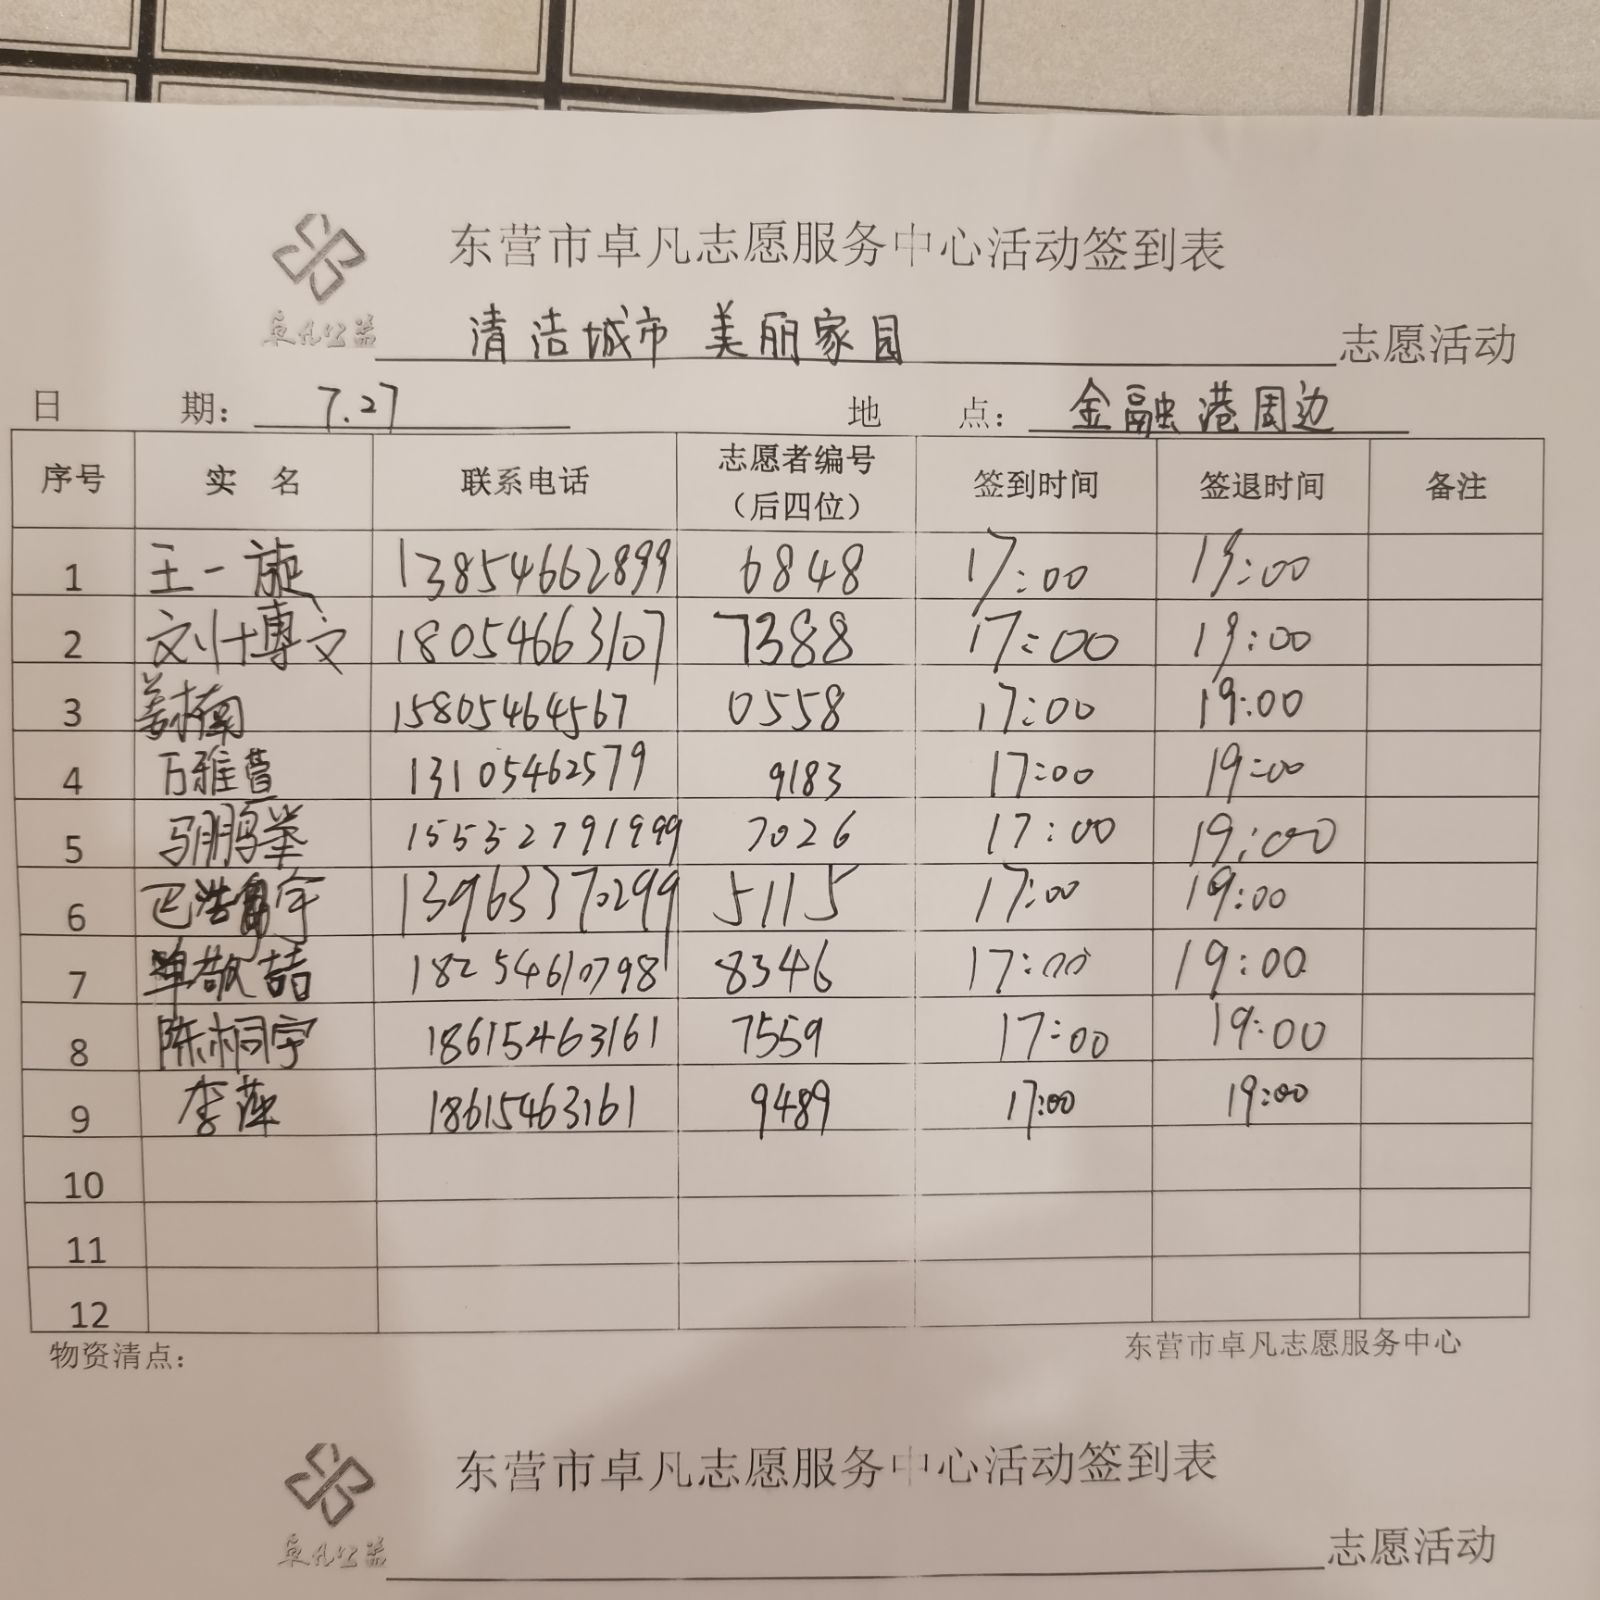 东营市卓凡志愿服务中心活动签到表
卓凡公益 清洁城市 美丽家园 志愿活动
日 期： 7.27 地 点： 金融港周边
序号 实 名 联系电话 志愿者编号（后四位） 签到时间 签退时间 备注
1 王一旎 13854662899 6848 17:00 19:00
2 刘博文 18054663107 7388 17:00 19:00
3 姜楠 15805464567 0558 17:00 19:00
4 万雅萱 13105462579 9183 17:00 19:00
5 马鹏举 15532791999 7026 17:00 19:00
6 巴浩宇 13963370299 5115 17:00 19:00
7 单敬喆 18254610798 8346 17:00 19:00
8 陈桐宇 18615463161 7559 17:00 19:00
9 李萍 18615463161 9489 17:00 19:00
10
11
12
物资清点： 东营市卓凡志愿服务中心
东营市卓凡志愿服务中心活动签到表
卓凡公益 志愿活动